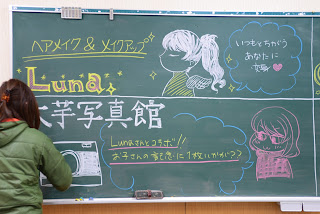 ヘアメイク & メイクアップ
Luna.
いつもとちがう
あなたに
変身
芋写真館
Lunaさんとコラボ!!
お子さんの記念に1枚いかが??